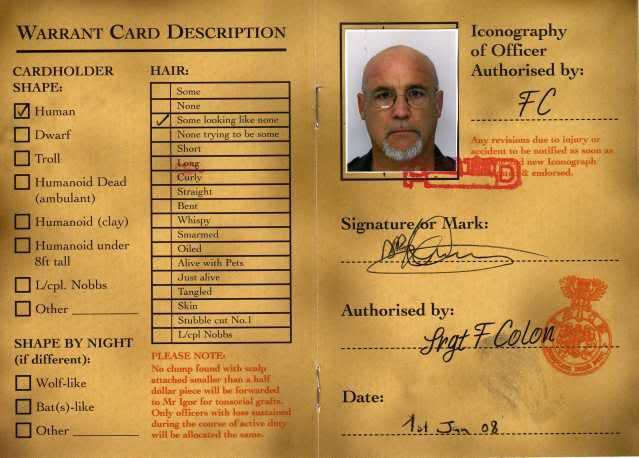 WARRANT CARD DESCRIPTION
CARDHOLDER
SHAPE:
Human
Dwarf
Troll
Humanoid Dead
(ambulant)
Humanoid (clay)
Humanoid under
8ft tall
L/cpl. Nobbs
Other
SHAPE BY NIGHT
(if different):
Wolf-like
Bat(s)-like
Other
HAIR:
Some
None
Some looking like none
None trying to be some
Short
Long
Curly
Straight
Bent
Whispy
Smarmed
Oiled
Alive with Pets
Just alive
Tangled
Skin
Stubble cut No.1
L/cpl Nobbs
PLEASE NOTE:
No clump found with scalp
attached smaller than a half
dollar piece will be forwarded
to Mr Igor for tonsorial grafts.
Only officers with loss sustained
during the course of active duty
will be allocated the same.
Iconography
of Officer
Authorised by:
FC
Any revisions due to injury or
accident to be notified as soon as
new Iconograph
& endorsed.
Signature or Mark:
Authorised by:
Srgt F Colon
Date:
1st Jan 08